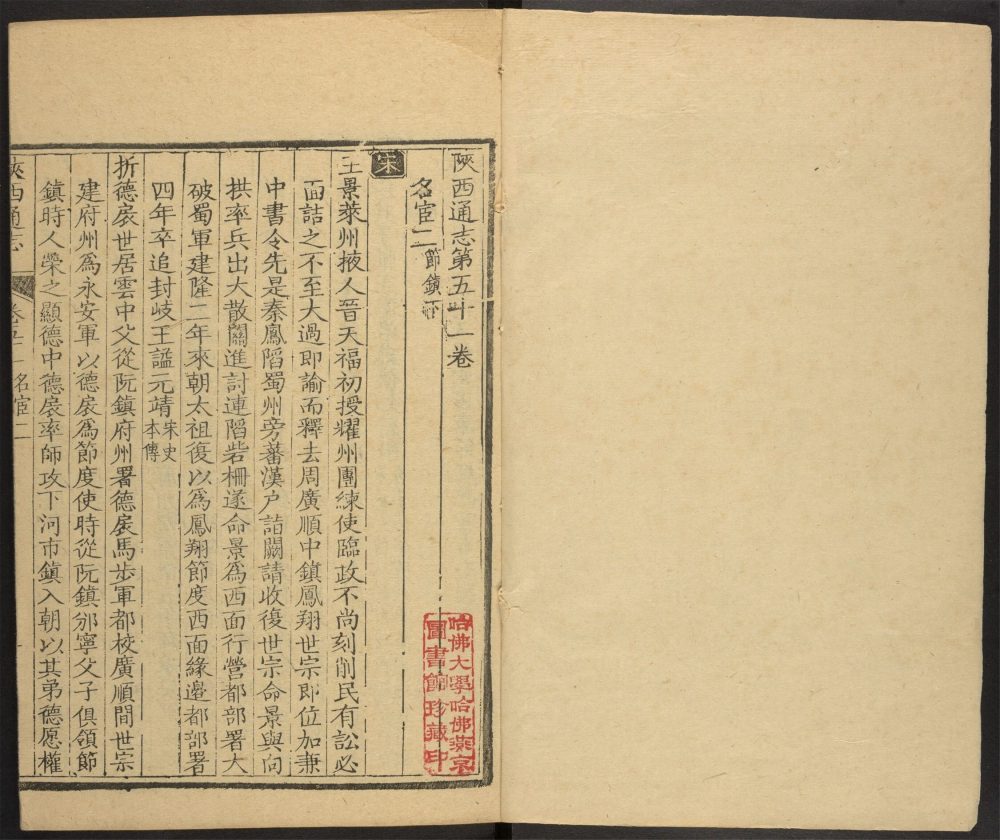 陜西通志第五十一卷
名宦二 節鎮下
宋
王景萊州掖人晉天福初授耀州團練使臨政不尚刻削民有訟必
面詰之不至大過即諭而釋去周廣順中鎮鳳翔世宗即位加兼
中書令先是秦鳳陷蜀州旁蕃漢户詣闕請收復世宗命景與向
拱率兵出大散關進討連陷砦柵遂命景爲西面行營都部署大
破蜀軍建隆二年來朝太祖復以爲鳳翔節度西面緣邊都部署
四年卒追封岐王諡元靖 宋史本傳
折德扆世居雲中父從阮鎮府州署德扆馬步軍都校廣順間世宗
建府州爲永安軍以德扆爲節度使時從阮鎮邠寧父子俱領節
鎮時人榮之顯德中德扆率師攻下河市鎮入朝以其弟德愿權
陜西通志
卷五十一 名宦二
哈佛大學哈佛燕京
圖書館珍藏印